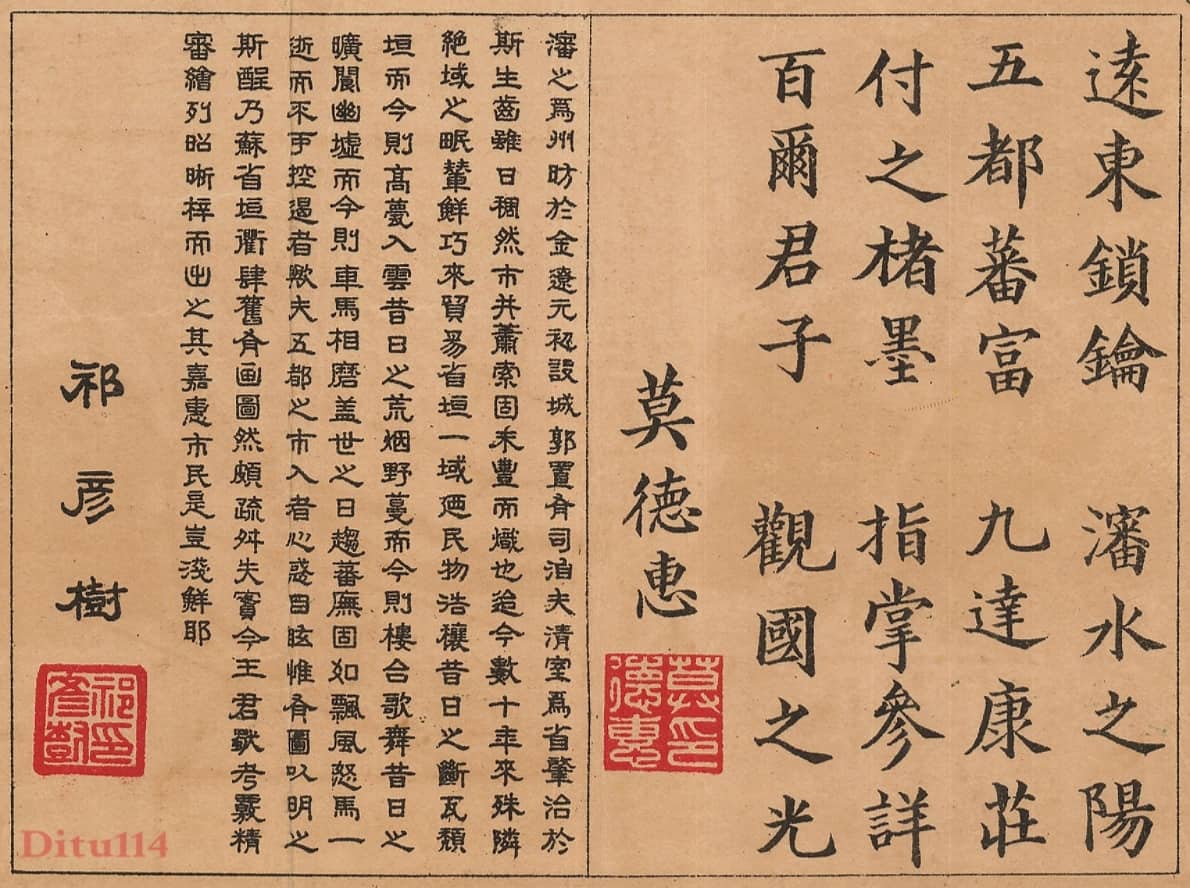 遠東鎖鑰　瀋水之陽
五都蕃富　九達康莊
付之楮墨　指掌參詳
百爾君子　觀國之光
莫德惠
莫印德惠
瀋之爲州昉於金遼元初設城郭置有司洎夫清室爲省肇治於
斯生齒雖日稠然市井蕭索固未豐而熾也迨今數十年來殊隣
絶域之眠輦鮮巧來貿易省垣一域乃民物浩穰昔日之斷瓦頹
垣而今則高甍入雲昔日之荒烟野蔓而今則樓台歌舞昔日之
曠閬幽墟而今則車馬相磨盖世之日趨蕃廡固如飄風怒馬一
逝而不可控遏者歟夫五都之市入者心惑目眩惟有圖以明之
斯酲乃蘇省垣衢肆舊有画圖然頗疏舛失實今王君猷考覈精
審繪列昭晰梓而出之其嘉惠市民是豈淺鮮耶
祁彦樹
祁印彦樹
Ditu114